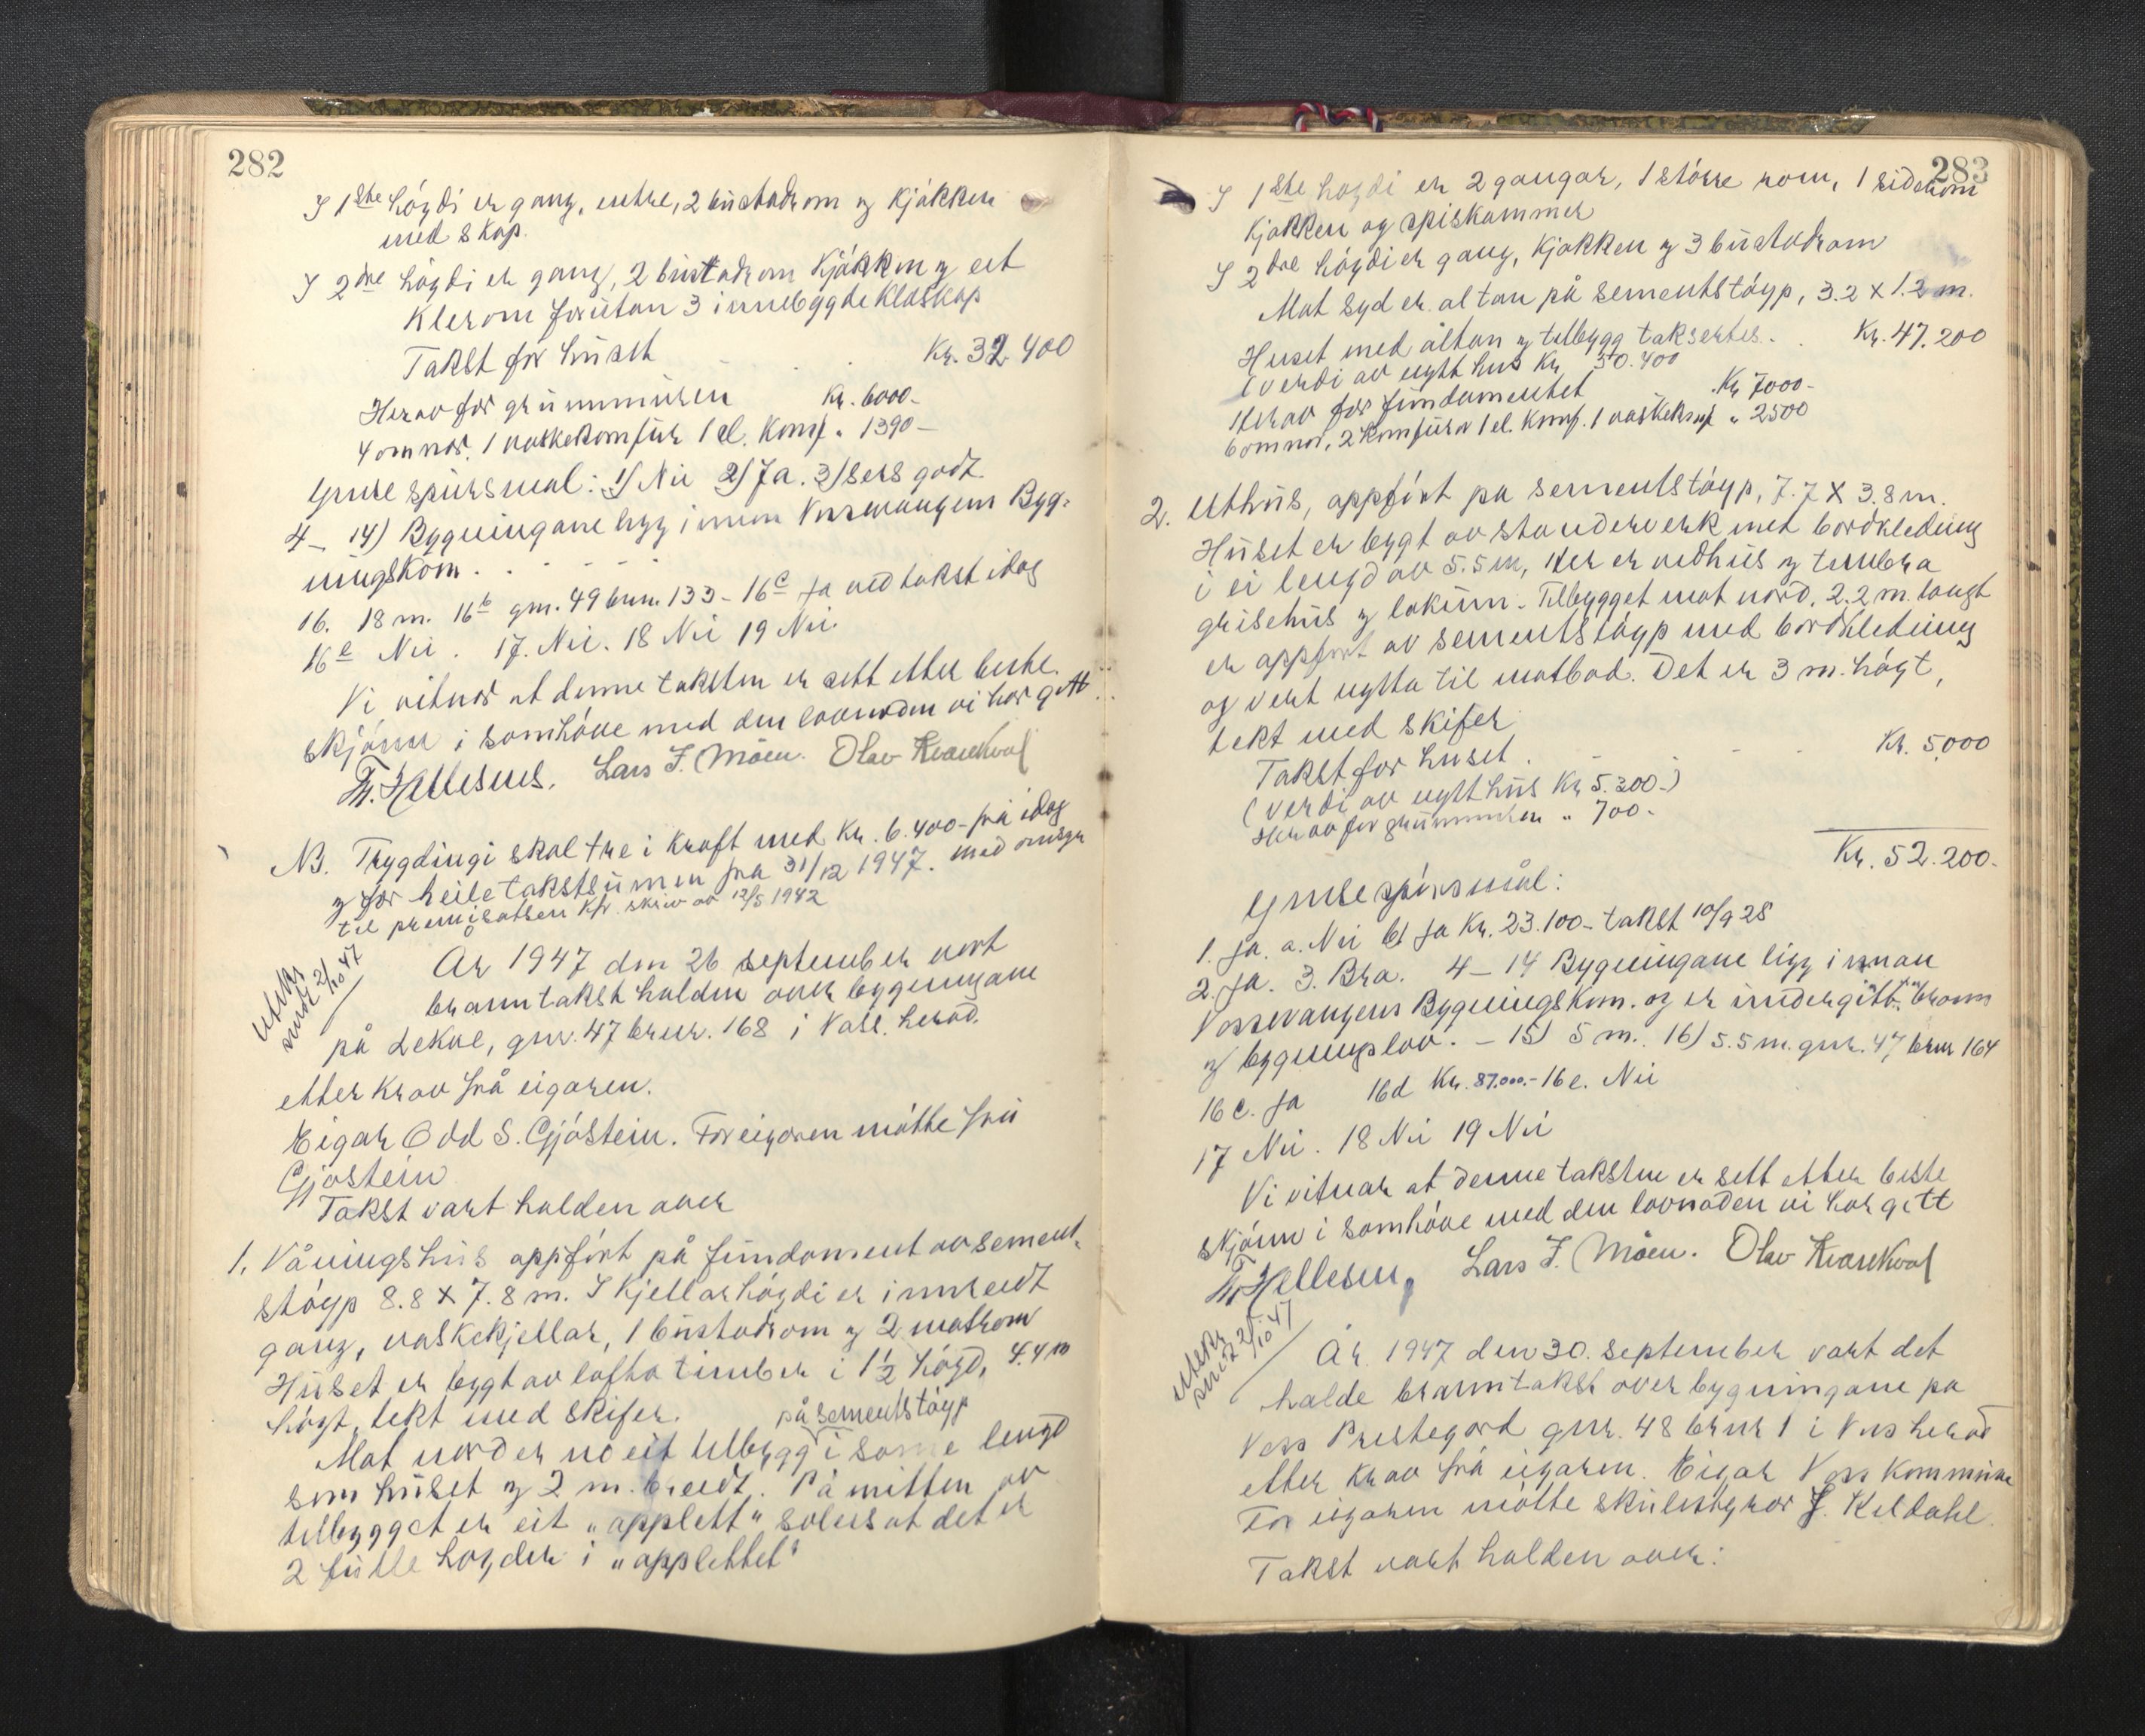 282
I 1ste högdi er gang, entre, 2 bustadrom og kjökken
med skap.
I 2dre högdi er gang, 2 bustadrom kjökken og eit
klerom forutan 3 innebygde klaskap
Takst for huset Kr. 32.400
Herav for grunnmuren Kr. 6000-
4 omnar. 1 vaskekomfur 1 el. komf. " 1390-
Ymse spursmal: 1) Nei 2) Ja. 3) Sers godt.
4- 14) Bygningane ligg innan Vossevangens Byg-
ningskom.
16. 18 m. 16b gnr. 49 brnr. 133 - 16c Ja ved takst idag
16e Nei. 17. Nei. 18 Nei 19 Nei.
Vi vitnar at denne taksten er sett etter beste
skjönn i samhöve med den lovnaden vi har gitt.
Tr. Hellesnes. Lars J. Möen. Olav Kvarekval
NB. Trygdingi skal tre i kraft med Kr. 6.400- frå idag
og for heile takstsumen fra 31/12 1947. med omsyn
til premisatsen kfr. skriv av 12/5 1942
Utskr.
sendt 2/10 47
År 1947 den 26 september vart
branntakst halden over bygningane
på Lekve, gnr. 47 brnr. 168 i Voss herad.
etter krav frå eigaren.
Eigar Odd S. Gjöstein. For eigaren mötte fru
Gjöstein
Takst vart halden over
1. Våningshus oppfört på fundament av sement-
stöyp 8.8 x 7.8 m. I kjellarhögdi er innreidt
gang, vaskekjellar, 1 bustadrom og 2 matrom
Huset er bygt av lafta timber i 1½ högd, 4.4 m
högt, tekt med skifer.
på sementstöyp
Mot nord er no eit tilbygg i same lengd
som huset og 2 m. breidt. På mitten av
tilbygget er eit "opplett" soleis at det er
2 fulle högder i "opplettet"
283
I 1ste högdi er 2 gangar, 1 större rom, 1 siderom
kjökken og spiskammer
I 2dre högdi er gang, kjökken og 3 bustadrom
Mot syd er altan på sementstöyp, 3.2 x 1.2 m.
Huset med altan og tilbygg taksertes. Kr. 47.200
(verdi av nytt hus Kr. 50.400
Herav for fundamentet Kr 7000-
6 omnar, 2 komfurar 1 el. komf. 1 vaskekomf " 2500
2. Uthus, oppfört på sementstöyp, 7.7 x 3.8 m.
Huset er bygt av standerverk med bordkledning
i ei lengd av 5.5 m, Her er vedhus og timbra
grisehus og lokum. Tilbygget mot nord, 2.2 m. langt
er oppfört av sementstöyp med bordkledning
og vert nytta til matbod. Det er 3 m. högt,
tekt med skifer
Takst for huset. Kr. 5.000
(verdi av nytt hus Kr 5.300-)
Herav for grunnmuren " 700-
Kr. 52.200-
Ymse spörsmål:
1. Ja. a. Nei b) Ja Kr. 23.100- takst 10/9 28
2. Ja. 3. Bra. 4- 14 Bygningane ligg innan
Vossevangens Bygningskom. og er undergitt brann
og bygningslov. - 15) 5 m. 16) 5.5 m. gnr. 47 brnr 164
16 c. Ja 16d Kr. 87.000.- 16 e. Nei
17 Nei. 18 Nei 19 Nei
Vi vitnar at denne taksten er sett etter beste
skjönn i samhöve med den lovnaden vi har gitt
Tr. Hellesnes Lars J. Möen. Olav Kvarekval
Utskr.
sendt 2/10 47
År 1947 den 30. september vart det
halde branntakst over bygningane på
Voss Prestegard gnr. 48 brnr 1 i Voss herad
etter krav frå eigaren. Eigar Voss kommune
For eigaren mötte skulestyrar J. Keldahl
Takst vart halden over: